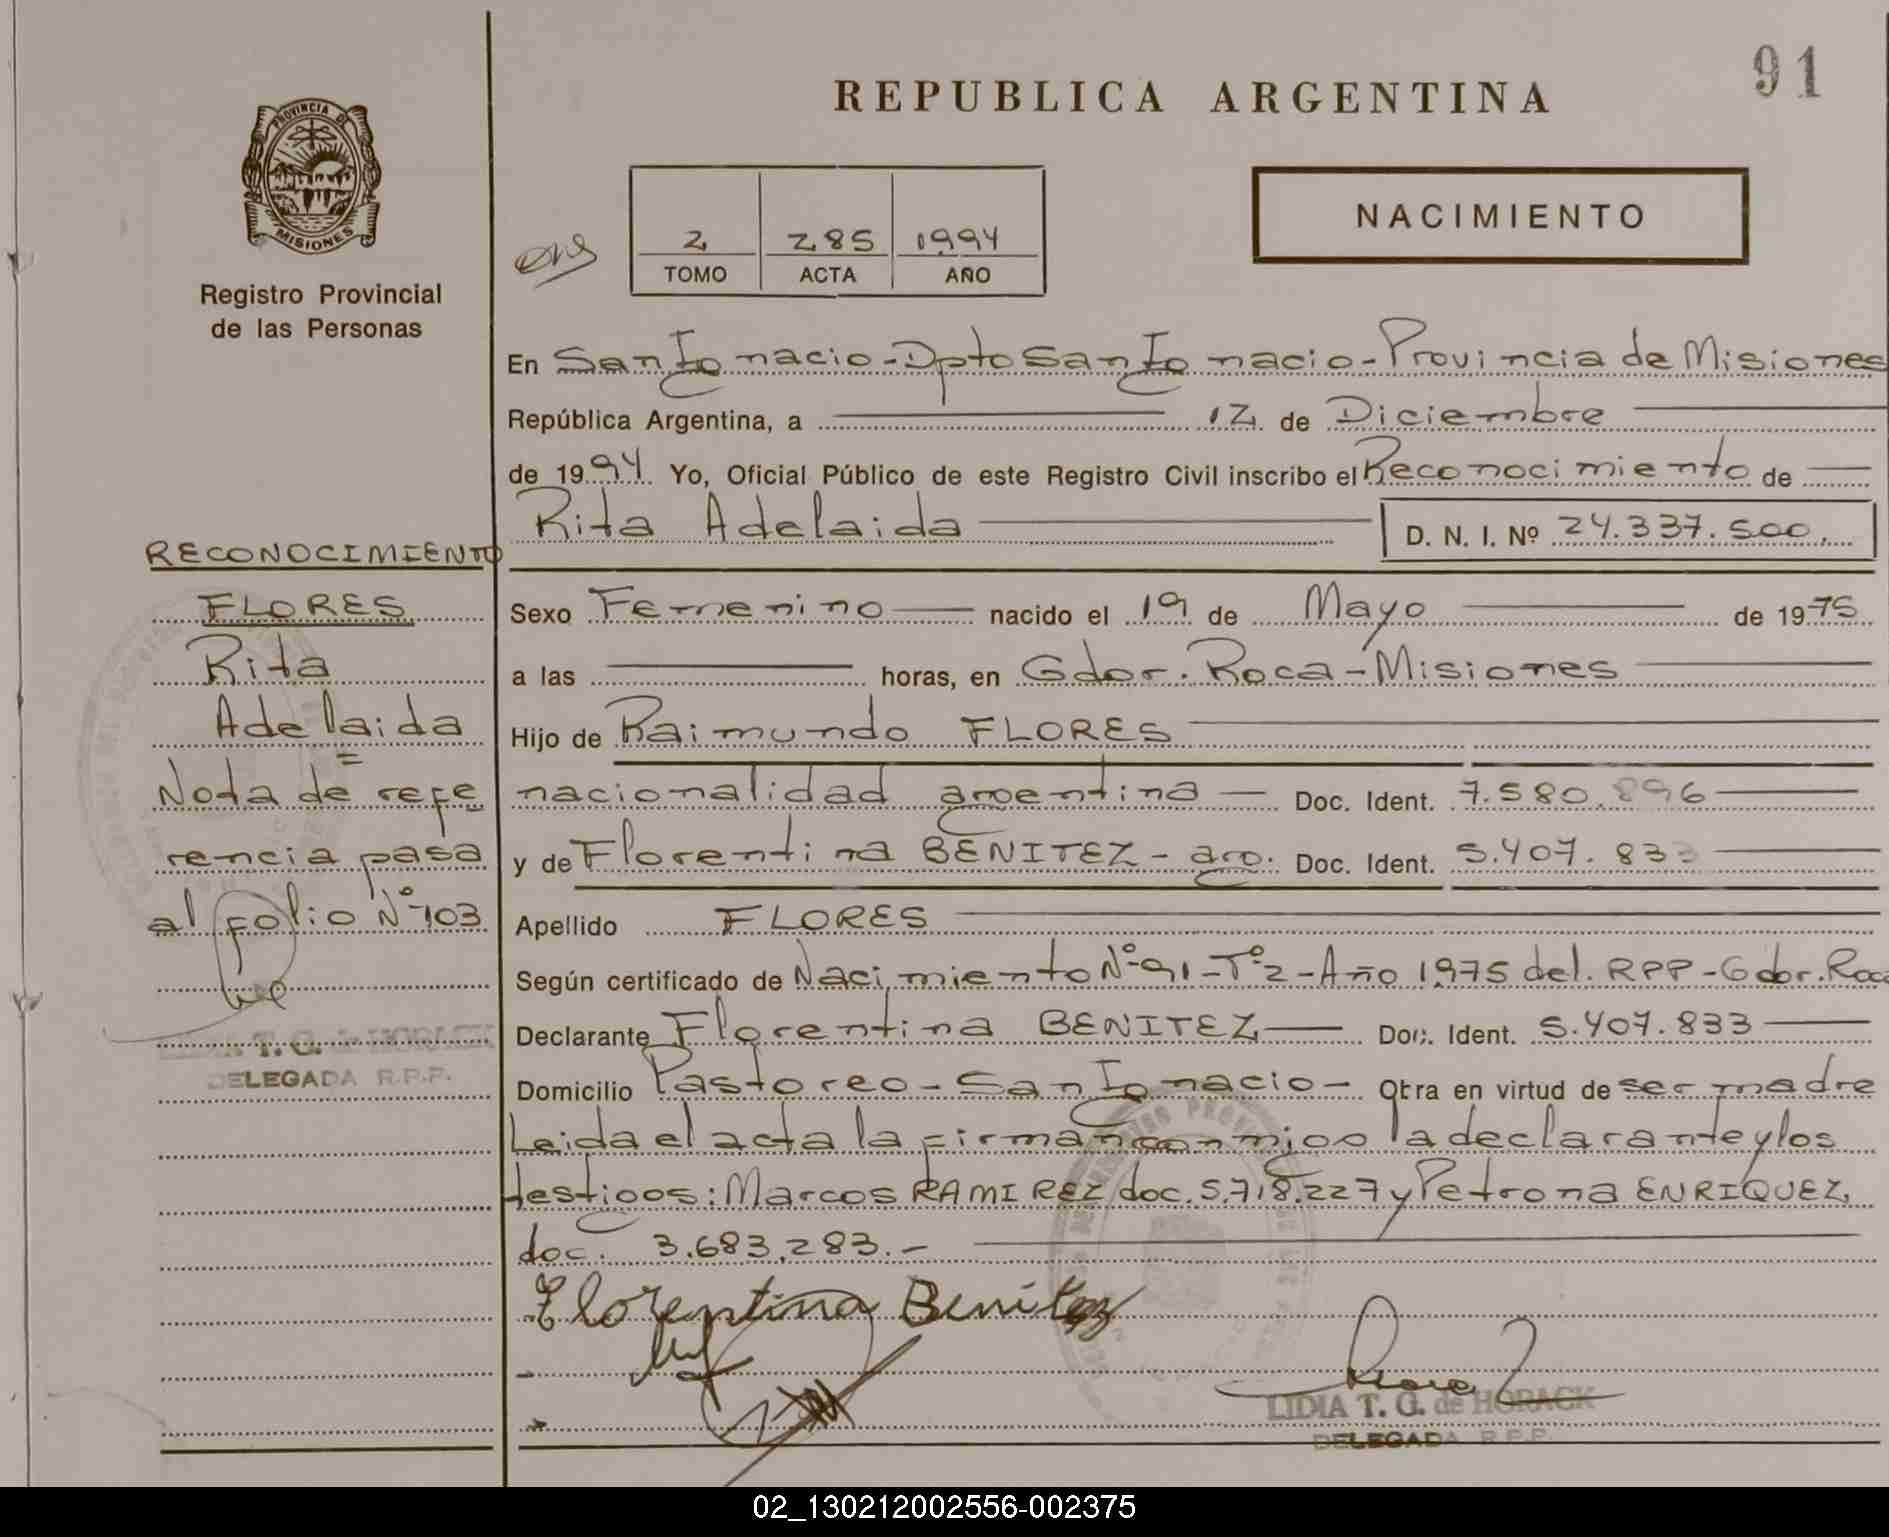 91
REPUBLICA ARGENTINA
PROVINCIA DE
MISIONES
Registro Provincial
de las Personas
2 285 1994
TOMO ACTA AÑO
NACIMIENTO
En San Ignacio-Dpto San Ignacio-Provincia de Misiones
República Argentina, a 12 de Diciembre
de 1994 Yo, Oficial Público de este Registro Civil inscribo el Reconocimiento de
Rita Adelaida D. N. I. Nº 24.337.500.
Sexo Femenino nacido el 19 de Mayo de 1975
a las horas, en Gdor. Roca-Misiones
Hijo de Raimundo FLORES
nacionalidad argentina Doc. Ident. 7.580.896
y de Florentina BENITEZ - arg. Doc. Ident. 5.407.833
Apellido FLORES
Según certificado de Nacimiento Nº 91-Tº 2-Año 1975 del. RPP-Gdor. Roca
Declarante Florentina BENITEZ Doc. Ident. 5.407.833
Domicilio Pastoreo-San Ignacio- Obra en virtud de ser madre
Leida el acta la firman conmigo la declarante y los
testigos: Marcos RAMIREZ doc. 5.718.227 y Petrona ENRIQUEZ
doc. 3.683.283.-
Florentina Benitez
LIDIA T. G. de HORACK
DELEGADA R.P.P.
RECONOCIMIENTO
FLORES
Rita
Adelaida
Nota de refe
rencia pasa
al folio Nº 103
LIDIA T. G. de HORACK
DELEGADA R.P.P.
02_130212002556-002375